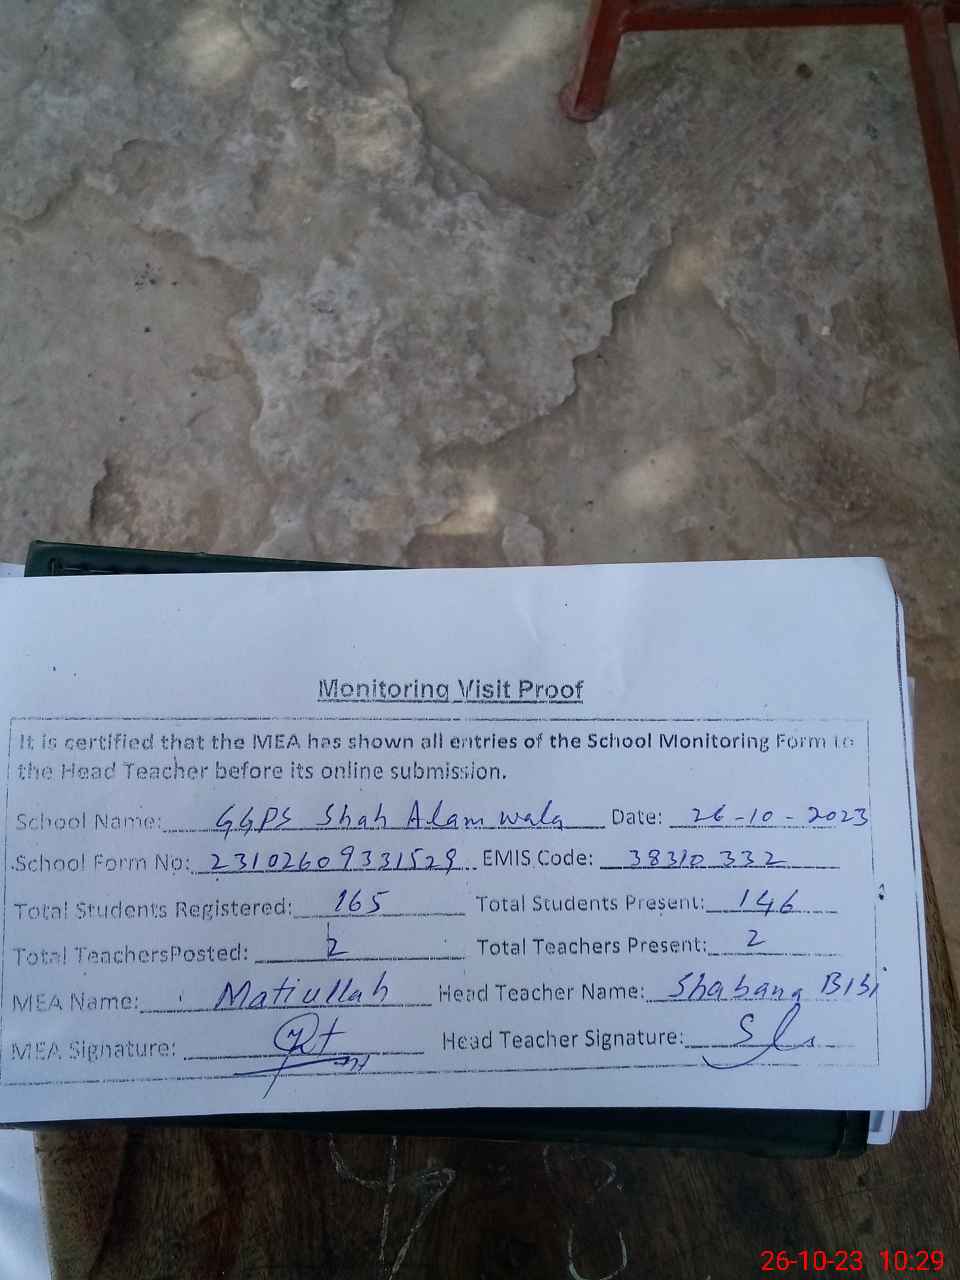 Monitoring Visit Proof
It is certified that the MEA has shown all entries of the School Monitoring Form to
the Head Teacher before its online submission.
School Name: GGPS Shah Alam wala Date: 26-10-2023
School Form No: 23102609331529 EMIS Code: 38310332
Total Students Registered: 165 Total Students Present: 146
Total TeachersPosted: 2 Total Teachers Present: 2
MEA Name: Matiullah Head Teacher Name: Shabana Bibi
MEA Signature: Head Teacher Signature:
26-10-23 10:29